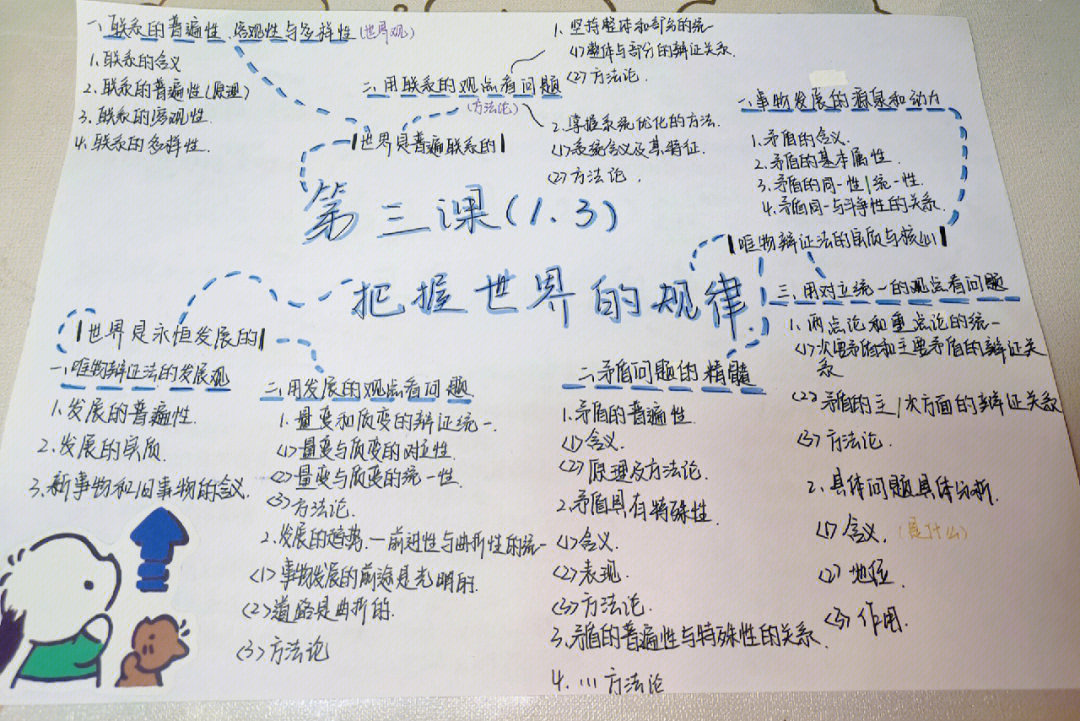 一、联系的普遍性、客观性与多样性(世界观)
1.联系的含义
2.联系的普遍性(原理)
3.联系的客观性.
4.联系的多样性.
二、用联系的观点看问题
(方法论)
1.坚持整体和部分的统一
<1>整体与部分的辩证关系.
<2>方法论.
2.掌握系统优化的方法.
<1>系统含义及其特征.
<2>方法论.
世界是普遍联系的
一、事物发展的源泉和动力
1.矛盾的含义.
2.矛盾的基本属性.
3.矛盾的同一性/统一性.
4.矛盾同一与斗争性的关系.
唯物辩证法的实质与核心
第三课(1.3)
把握世界的规律
世界是永恒发展的
一、唯物辩证法的发展观
1.发展的普遍性.
2.发展的实质.
3.新事物和旧事物的含义.
二、用发展的观点看问题
1.量变和质变的辩证统一.
<1>量变与质变的对立性.
<2>量变与质变的统一性.
<3>方法论.
2.发展的趋势.一前进性与曲折性的统一
<1>事物发展的前途是光明的.
<2>道路是曲折的.
<3>方法论
二、矛盾问题的精髓
1.矛盾的普遍性.
<1>含义.
<2>原理及方法论.
2.矛盾具有特殊性.
<1>含义.
<2>表现.
<3>方法论.
3.矛盾的普遍性与特殊性的关系.
4....方法论
三、用对立统一的观点看问题
1.两点论和重点论的统一
<1>次要矛盾和主要矛盾的辩证关
系
<2>矛盾的主/次方面的辩证关系
<3>方法论.
2.具体问题具体分析.
<1>含义.(是什么)
<2>地位.
<3>作用.